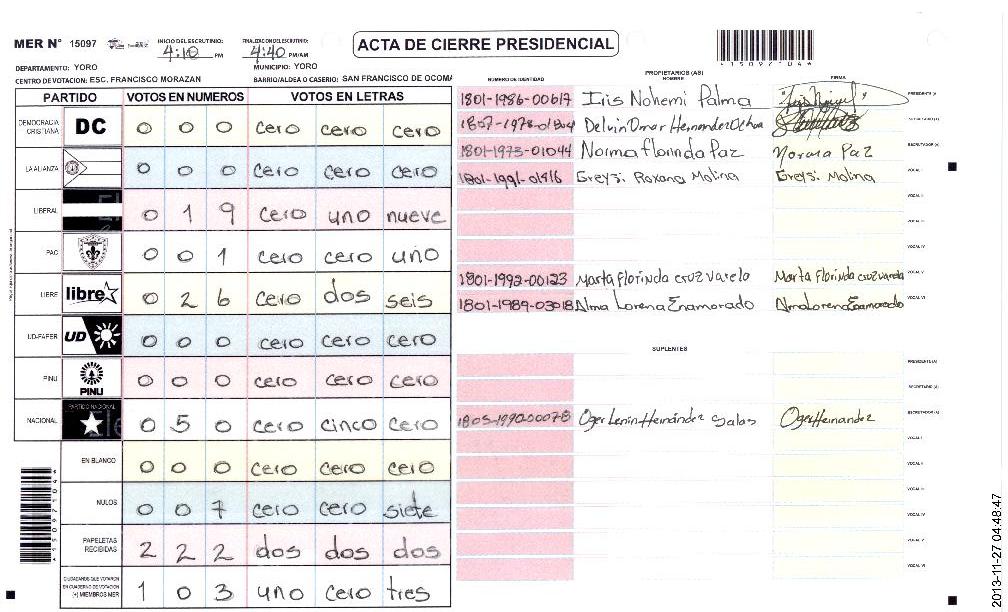 MER N° 15097 INICIO DEL ESCRUTINIO: 4:10 PM FINALIZACION DEL ESCRUTINIO: 4:40 PM/AM ACTA DE CIERRE PRESIDENCIAL
DEPARTAMENTO: YORO MUNICIPIO: YORO
CENTRO DE VOTACION: ESC. FRANCISCO MORAZAN BARRIO/ALDEA O CASERIO: SAN FRANCISCO DE OCOMA
PARTIDO VOTOS EN NUMEROS VOTOS EN LETRAS
DEMOCRACIA CRISTIANA DC 0 0 0 cero cero cero
LA ALIANZA 0 0 0 cero cero cero
LIBERAL 0 1 9 cero uno nueve
PAC 0 0 1 cero cero uno
LIBRE libre 0 2 6 cero dos seis
UD-FAPER UD 0 0 0 cero cero cero
PINU PINU 0 0 0 cero cero cero
NACIONAL PARTIDO NACIONAL 0 5 0 cero cinco cero
EN BLANCO 0 0 0 cero cero cero
NULOS 0 0 7 cero cero siete
PAPELETAS RECIBIDAS 2 2 2 dos dos dos
CIUDADANOS QUE VOTARON EN CUADERNO DE VOTACION (+) MIEMBROS MER 1 0 3 uno cero tres
PROPIETARIOS (AS)
NUMERO DE IDENTIDAD NOMBRE FIRMA
1801-1986-00617 Iris Nohemi Palma PRESIDENTE (A)
Delvin Omar Hernandez Ochoa SECRETARIO (A)
1801-1973-01044 Norma florinda Paz Norma Paz ESCRUTADOR (A)
1801-1991-01416 Greysi Roxana Molina Greysi Molina VOCAL I
VOCAL II
VOCAL III
VOCAL IV
1801-1992-00123 Marta florinda cruz varela Marta florinda cruz varela VOCAL V
1801-1989-03018 Alma Lorena Enamorado Alma Lorena Enamorado VOCAL VI
SUPLENTES
PRESIDENTE (A)
SECRETARIO (A)
1805-1990-00078 Oger Lenin Hernández Salas Oger Hernandez ESCRUTADOR (A)
VOCAL I
VOCAL II
VOCAL III
VOCAL IV
VOCAL V
VOCAL VI
*150971044*
2013-11-27 04:48:47